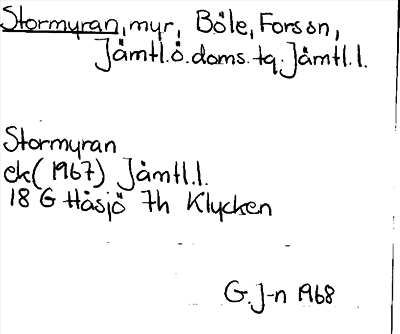 Stormyran, myr, Böle, Forsön,
Jämtl.ö.doms.tq. Jämtl.l.
Stormyran
ek (1967) Jämtl.l.
18 G Håsjö 7h Klycken
G.J-n 1968